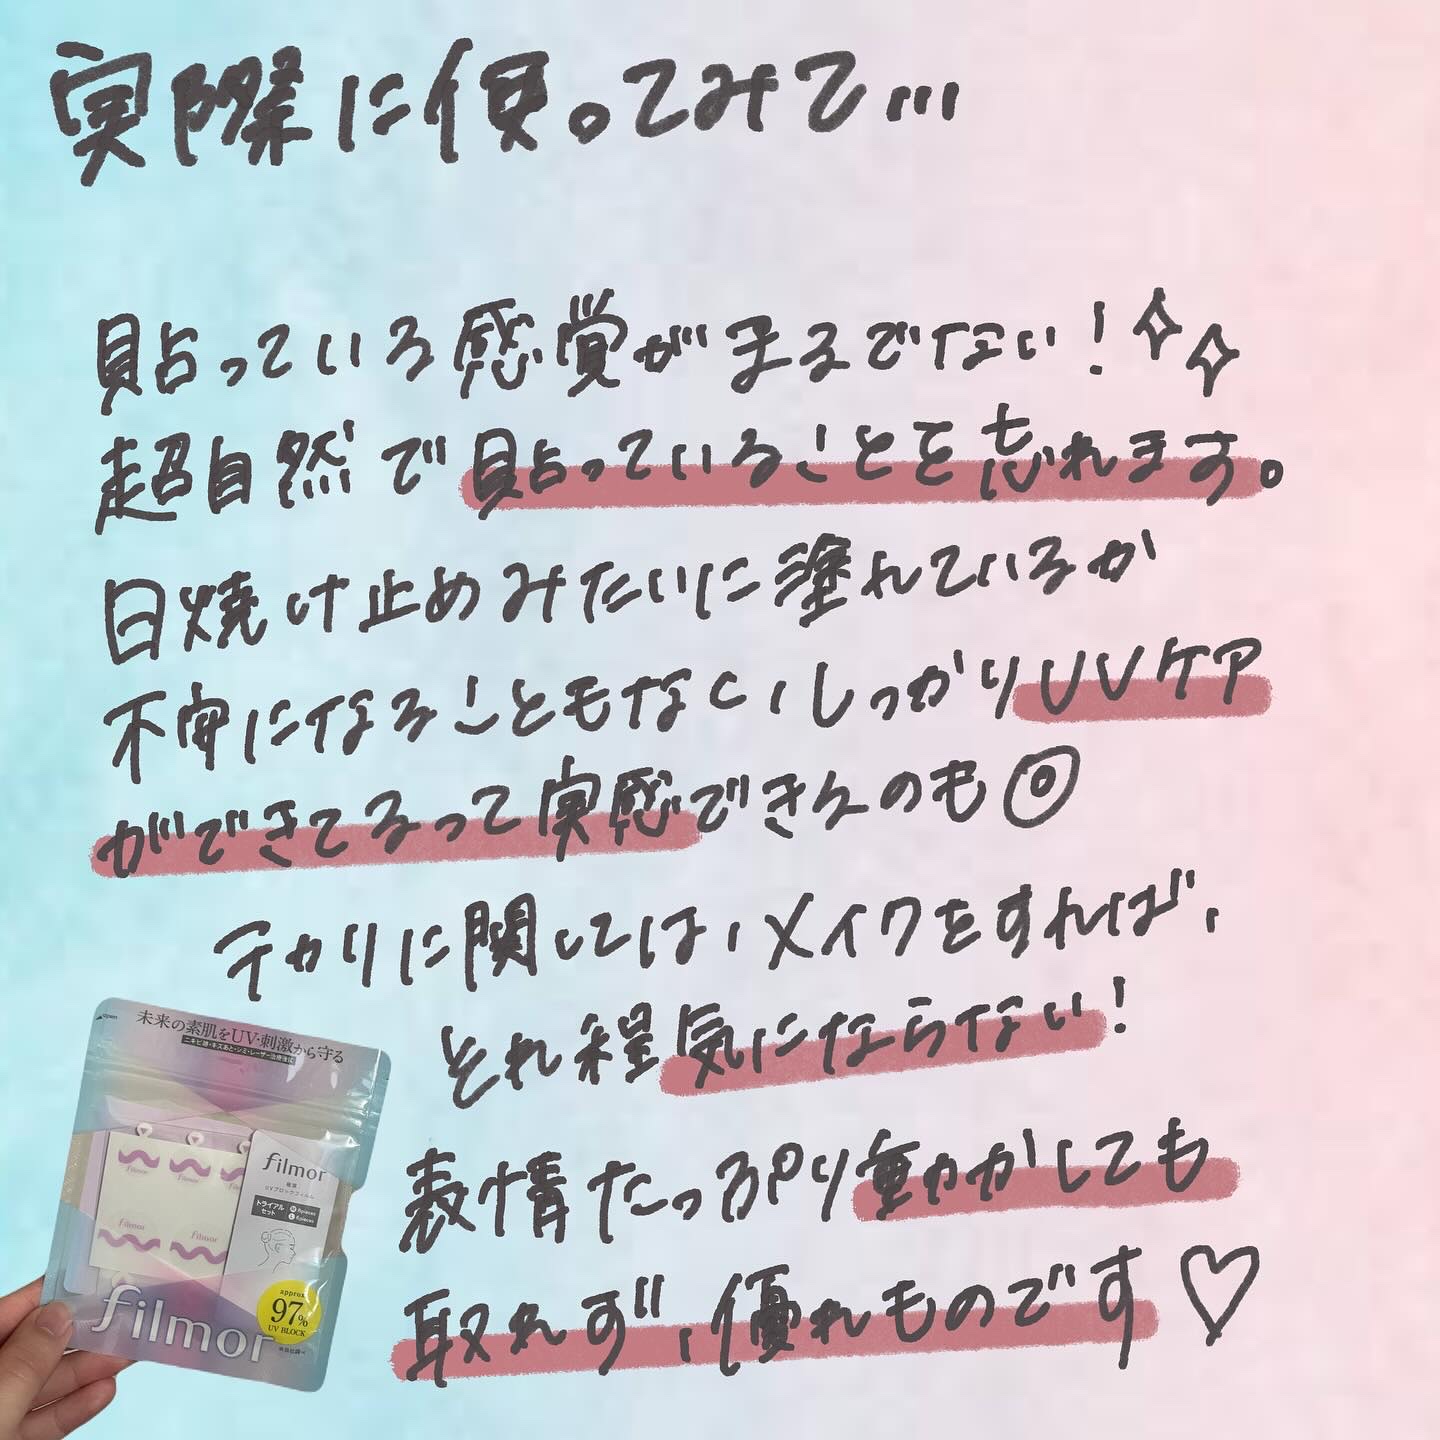 実際に使ってみて...
貼っている感覚がまるでない！
超自然で貼っていることを忘れます。
日焼け止めみたいに塗れているか
不安になることもない、しっかりUVケア
ができてるって実感できるのも◎
テカリに関しては、メイクをすれば、
それ程気にならない！
表情たっぷり動かしても
取れず、優れものです♡
open
未来の素肌をUV・刺激から守る
ニキビ跡・キズあと・シミ・レーザー治療後に
filmor
filmor
filmor
filmor
極薄
UVブロックフィルム
トライアル
セット
filmor
approx.
97%
UV BLOCK